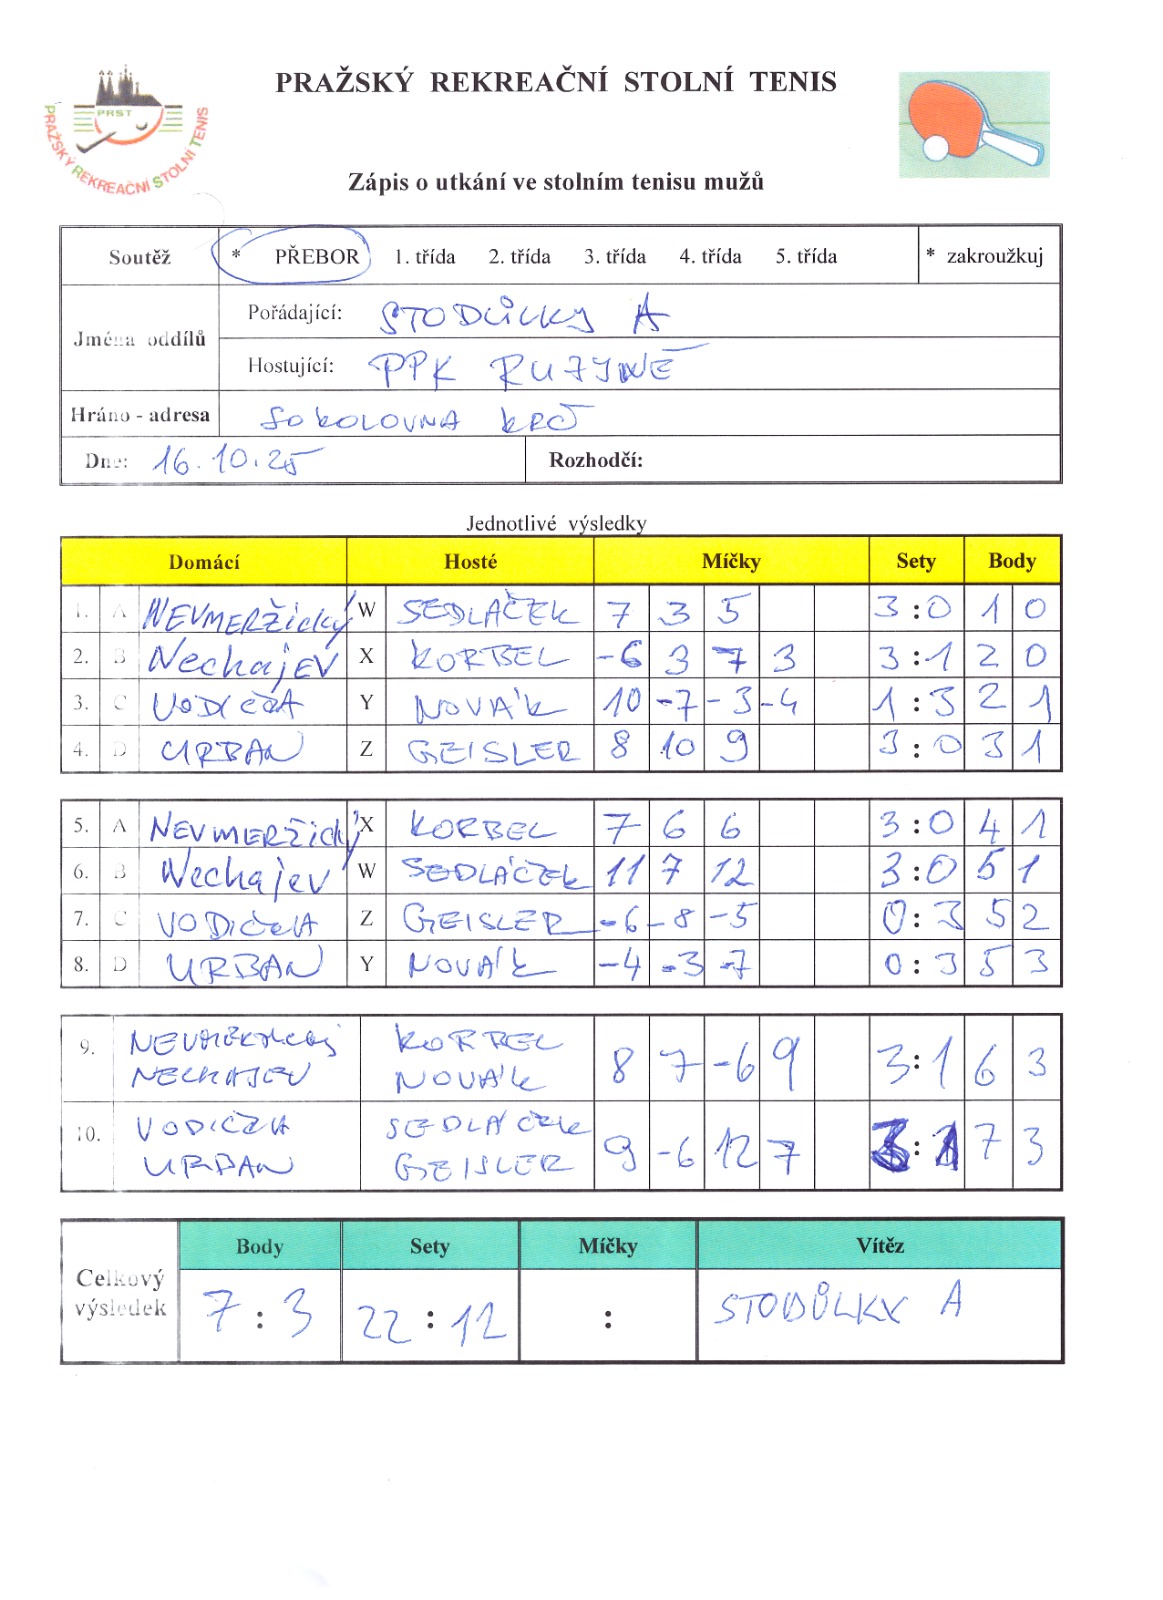 PRAŽSKÝ REKREAČNÍ STOLNÍ TENIS
PRST
PRAŽSKÝ REKREAČNÍ STOLNÍ TENIS
Zápis o utkání ve stolním tenisu mužů
Soutěž * PŘEBOR 1. třída 2. třída 3. třída 4. třída 5. třída * zakroužkuj
Jména oddílů
Pořádající: STODŮLKY A
Hostující: PPK RUZYNĚ
Hráno - adresa SOKOLOVNA KRČ
Dne: 16.10.25 Rozhodčí:
Jednotlivé výsledky
Domácí Hosté Míčky Sety Body
1. A NEVMERŽický W SEDLÁČEK 7 3 5 3:0 1 0
2. B Nechajev X KORBEL -6 3 7 3 3:1 2 0
3. C VODIČKA Y NOVÁK 10 -7 -3 -4 1:3 2 1
4. D URBAN Z GEISLER 8 10 9 3:0 3 1
5. A NEVMERŽický X KORBEL 7 6 6 3:0 4 1
6. B Nechajev W SEDLÁČEK 11 7 12 3:0 5 1
7. C VODIČKA Z GEISLER -6 -8 -5 0:3 5 2
8. D URBAN Y NOVÁK -4 -3 -7 0:3 5 3
9. NEVMĚRŽICKÝ KORBEL
NECHAJEV NOVÁK 8 7 -6 9 3:1 6 3
10. VODIČKA SEDLÁČEK
URBAN GEISLER 9 -6 12 7 3:1 7 3
Body Sety Míčky Vítěz
Celkový výsledek 7:3 22:12 : STODŮLKY A